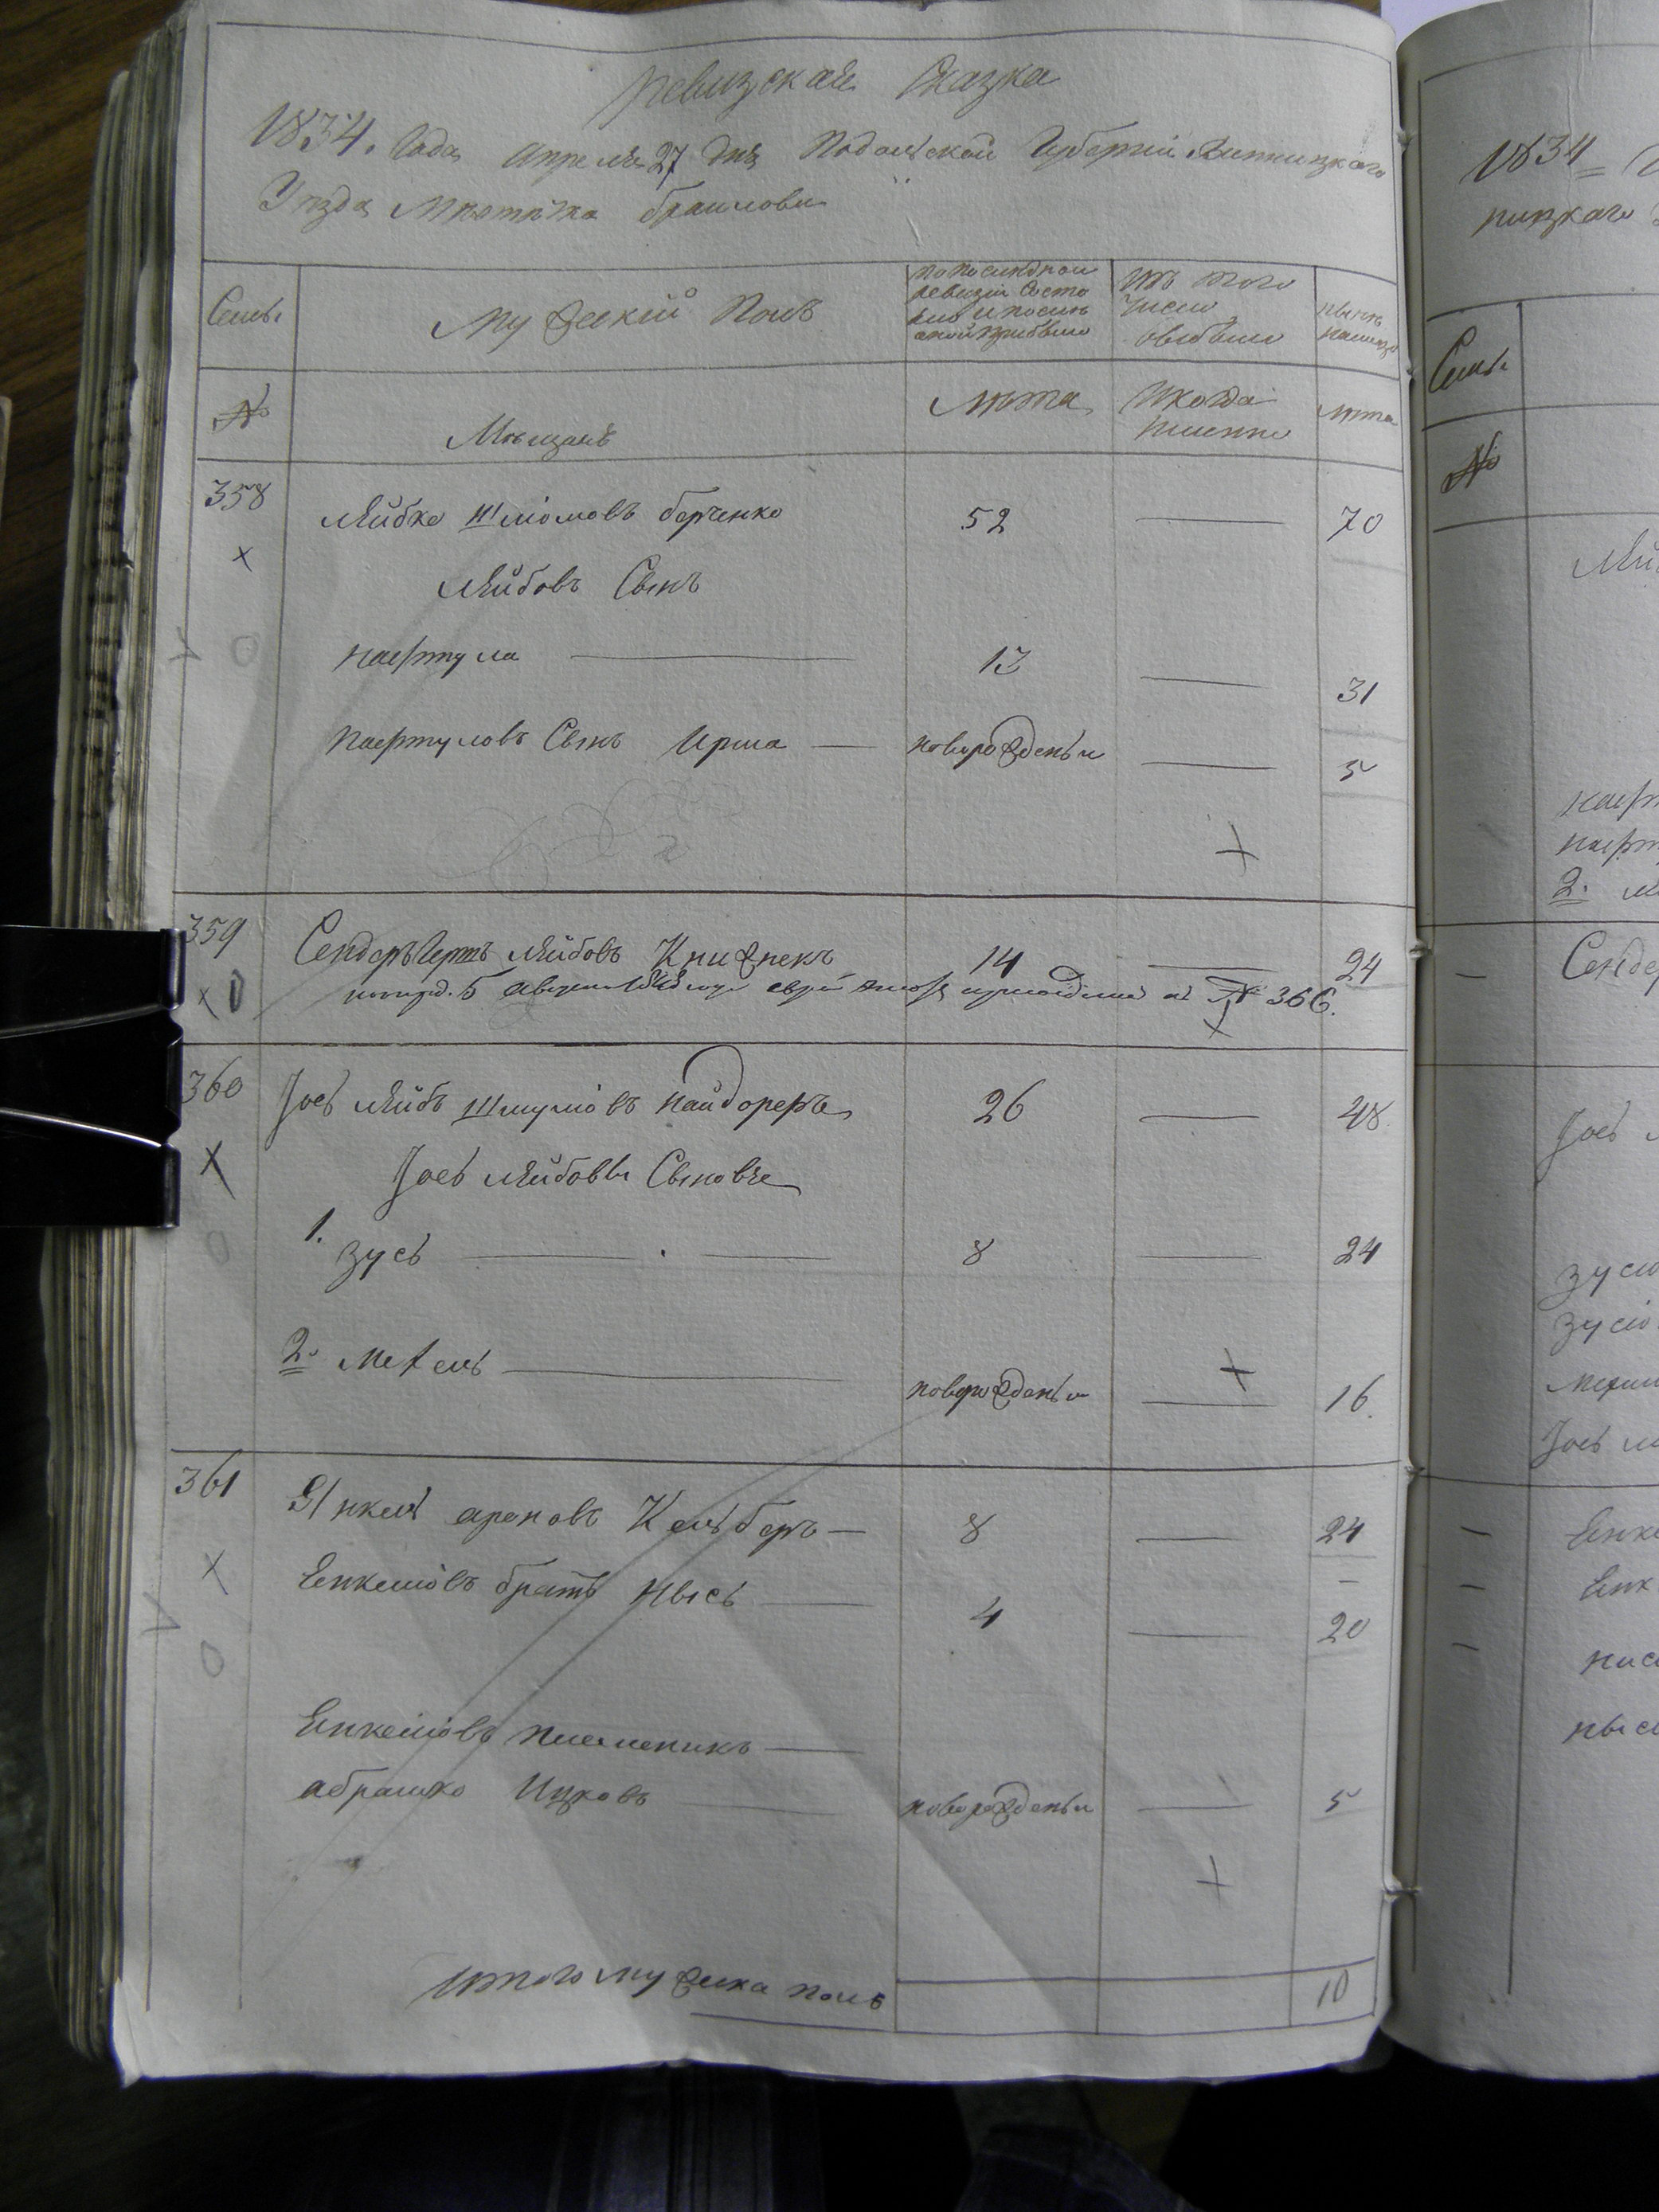 Ревизская Сказка
1834. Года апреля 27 дня Подольской Губернии Винницкого
Уезда Местечка браилова
Семьи
Мужеский Полъ
по последной
ревизии состо
яло и после
оной прибыло
Изъ того
числа
выбыло
ныне
налицо
№
Мещане
Лета
Когда
именно
лета
358
Лейбко Шлiомовъ берченко
52
70
Лейбовъ Сынъ
Нафтула
13
31
Нафтуловъ Сынъ Ирша
новорожденъи
5
359
Сендеръ Герш Лейбовъ Книжнекъ
14
24
5 августа № 366.
360
Iось Лейбъ Шмулiовъ Найдореръ
26
48
Iось Лейбовы Сыновъе
1.
Зусь
8
24
2. Мехель
новорожденъи
16
361
Янкель ароновъ Кельберъ
8
24
Енкелiовъ братъ Нысь
4
20
Енкелiовъ племеникъ
абрашко Ицковъ
новорожденъи
5
Итого мужеска полъ
10
1834
ницкаго
Семьи
№
Лей
нафт
нафт
2.
Сендер
Iось
зусю
зусю
Iось
Енке
Енк
нис
ныс